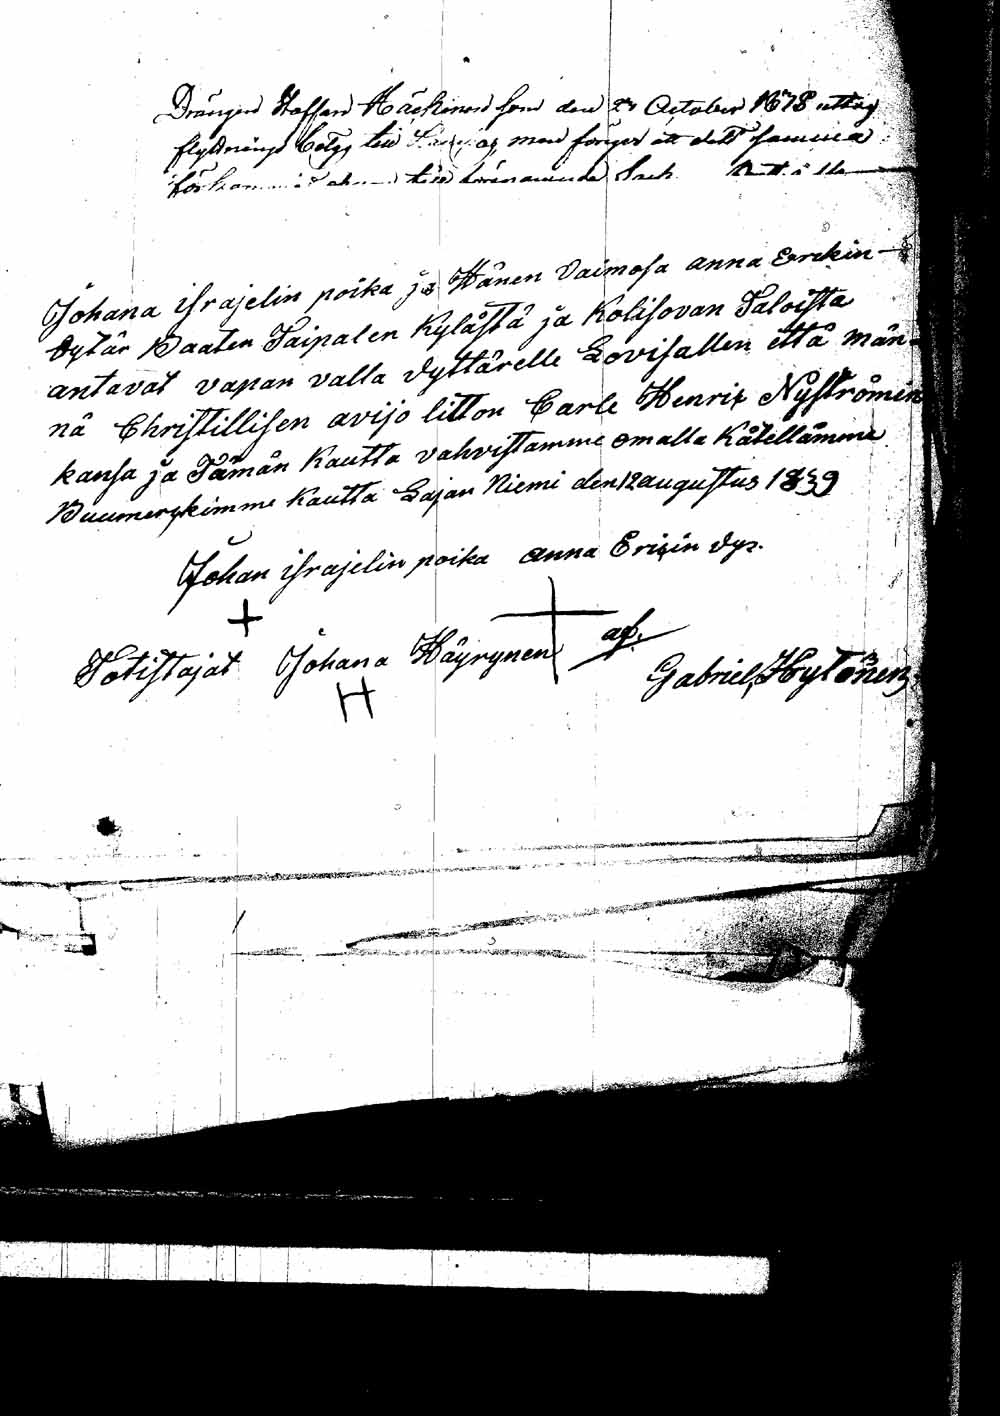 Drängen Staffan Häckinen som den 27 October 1878 uttog
flyttnings betyg till men föreger att dett samma
till
Johana israjelin poika ja Hänen Vaimosa anna Errekin-
dytär Paaten Taipalen Kylästä ja Kolisovan Taloista
antavat vapan valla dyttärelle Lovisallen että män-
nä Christillisen avijo litton Carle Henrik Nyströmin
kansa ja Tämän Kautta vahvistamme omalla Kätellämme
Puumerykimme Kautta Lajan Niemi den 12 augustus 1839
Johan israjelin poika anna Erikin dyr.
Totistajat Johana Häyrynen af.
H
Gabriel Hytönen